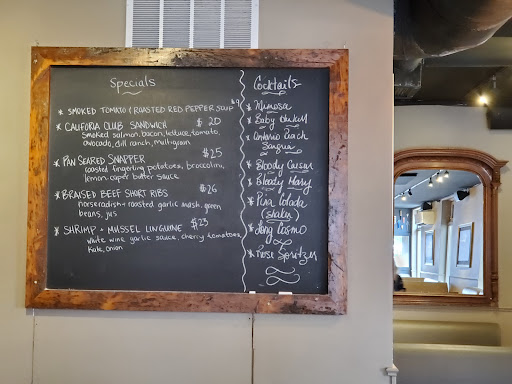 Specials
* SMOKED TOMATO & ROASTED RED PEPPER SOUP $9
* CALIFORIA CLUB SANDWICH $20
Smoked salmon, bacon, lettuce, tomato,
avocado, dill ranch, multigrain
* PAN SEARED SNAPPER $25
roasted fingerling potatoes, broccolini,
lemon caper butter sauce
* BRAISED BEEF SHORT RIBS $26
horseradish + roasted garlic mash, green
beans, jus
* SHRIMP + MUSSEL LINGUINE $23
white wine garlic sauce, cherry tomatoes,
kale, onion
Cocktails
* Mimosa
* Baby
* Ontario Peach
Sangria
* Bloody Caesar
* Bloody Mary
* Pina Colada
* Cosmo
* Rose Spritzer